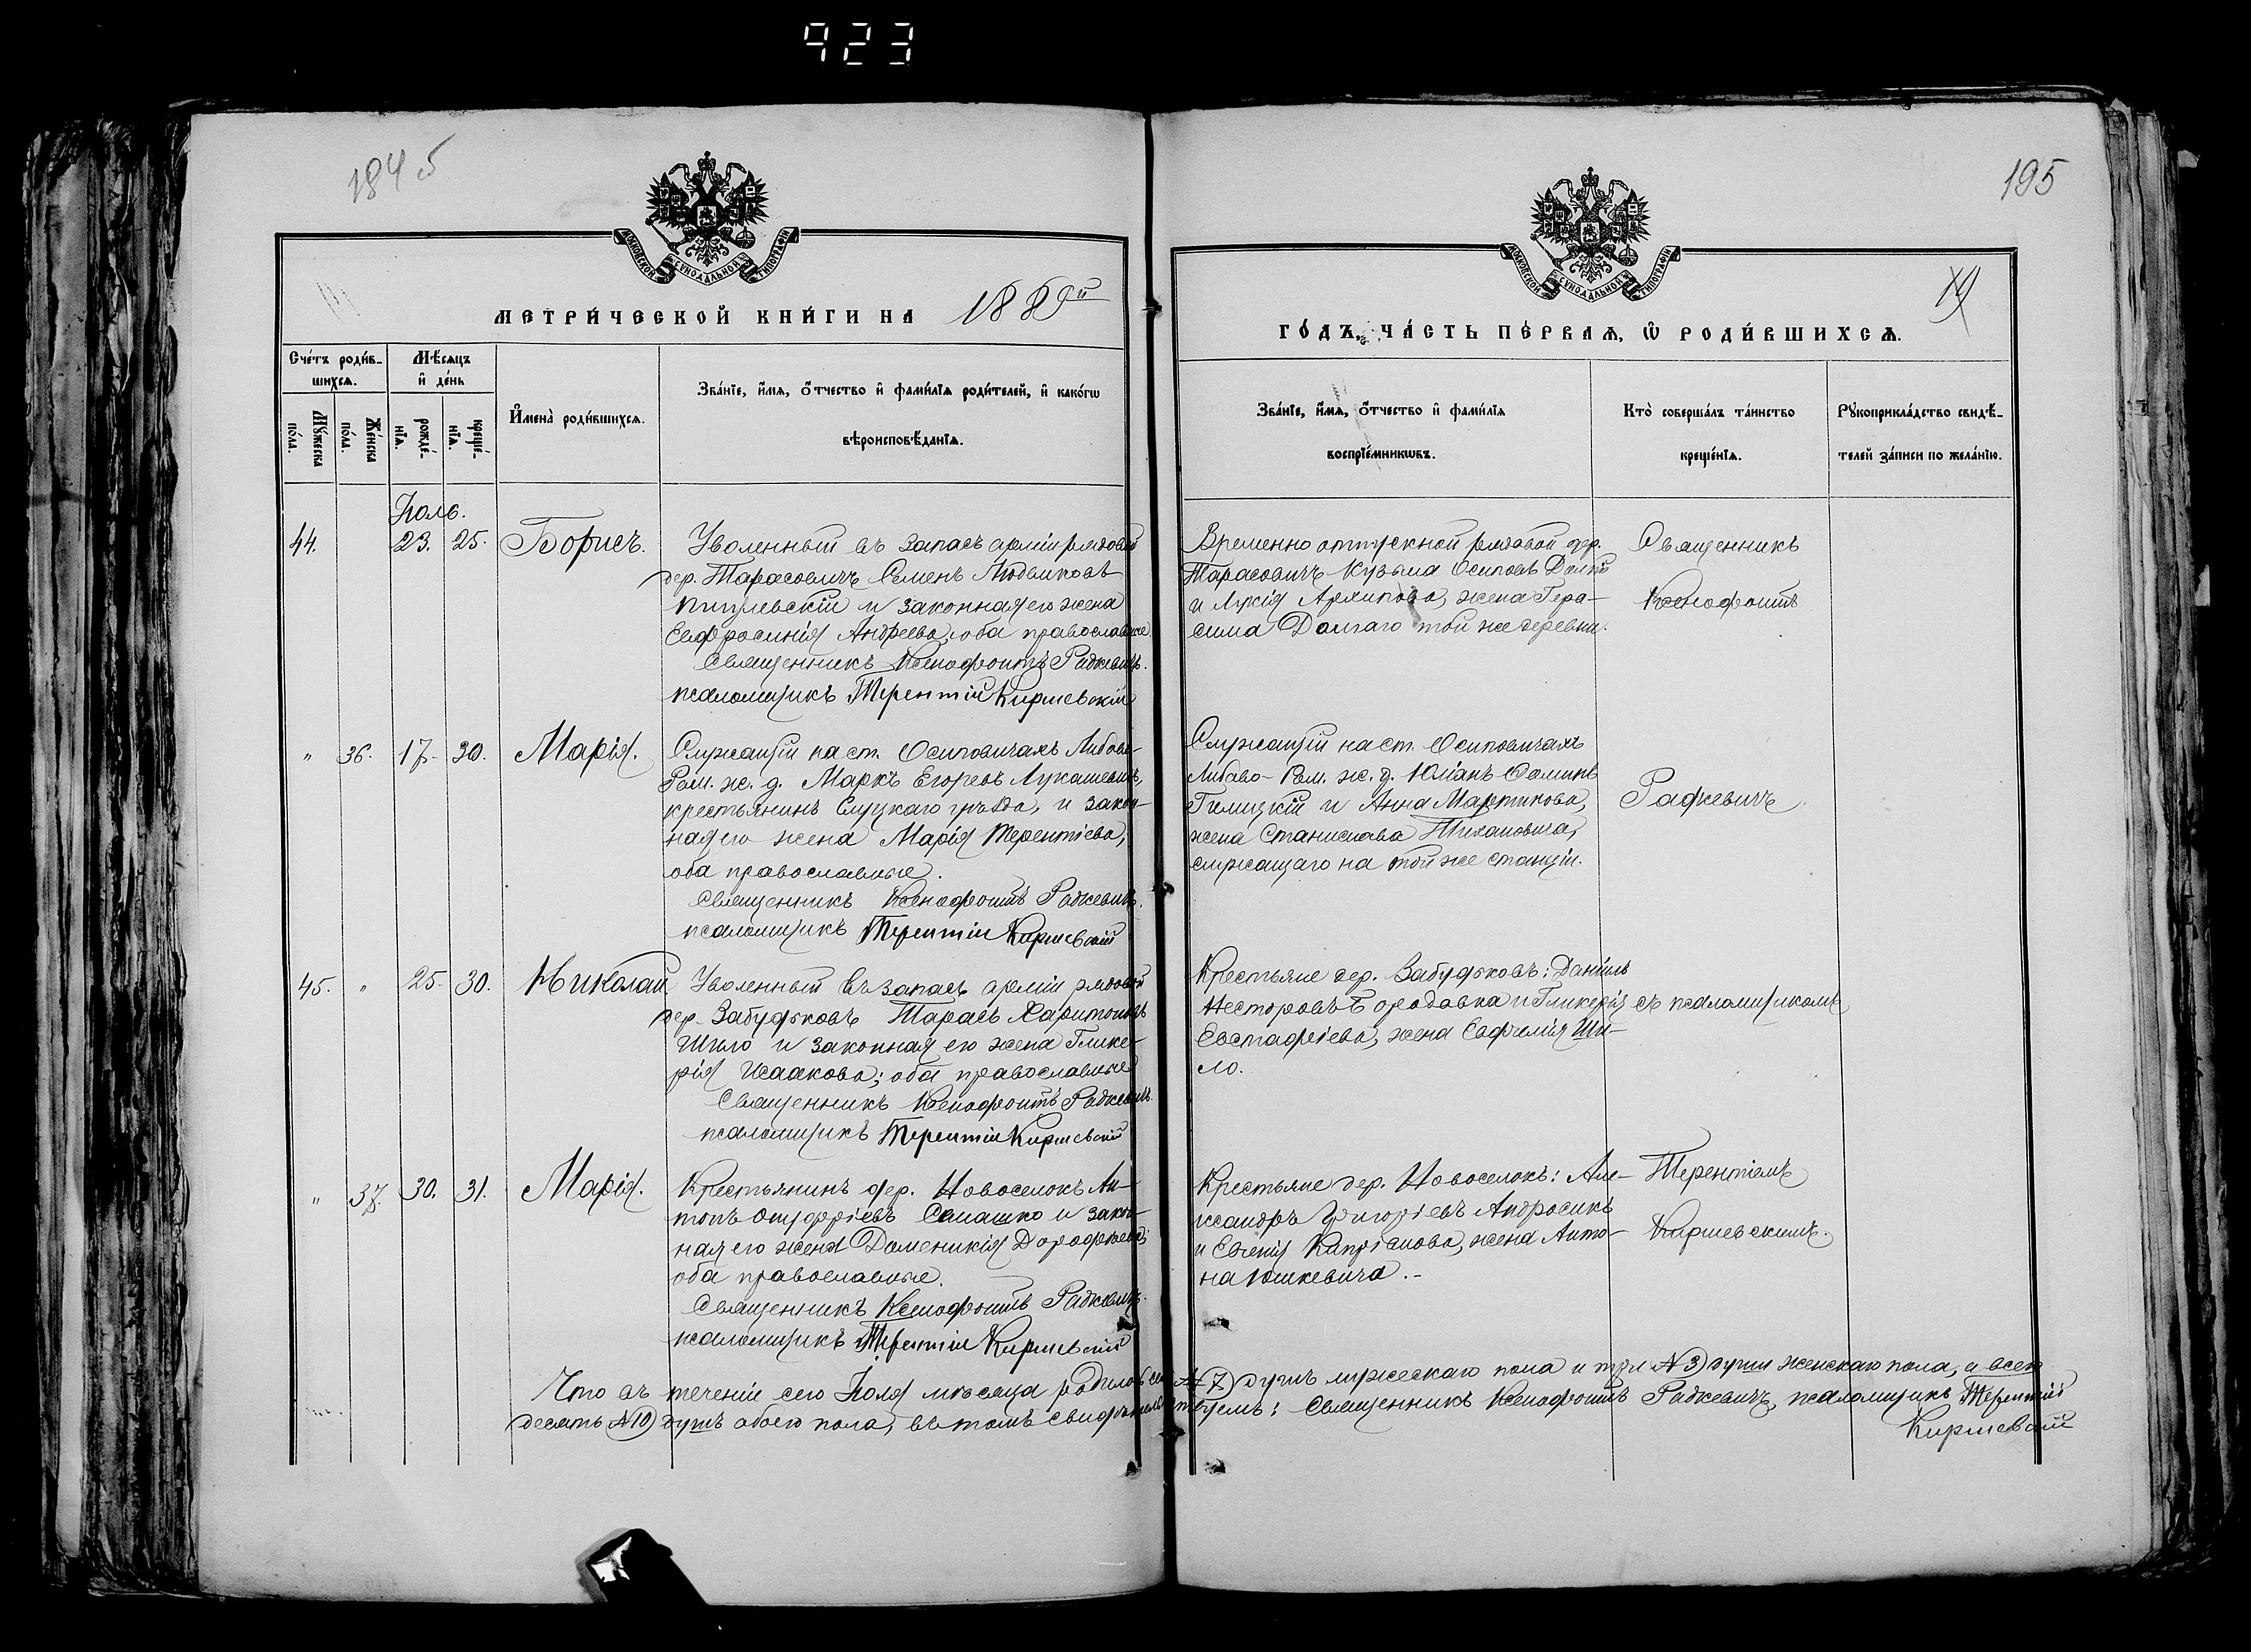 423
184 5
195
МОСКОВСКОЙ СУНОДАЛЬНОЙ ТИПОГРАФІИ
МОСКОВСКОЙ СУНОДАЛЬНОЙ ТИПОГРАФІИ
19
МЕТРИ́ЧЕСКОЙ КНИ́ГИ НА 1889й
ГО́ДЪ, ЧА́СТЬ ПЕ́РВАѦ, Ѡ РОДИ́ВШИХСѦ.
Сче́тъ роди́в-
шихсѧ.
Мꙋ́жеска
по́ла.
Же́нска
по́ла.
Мѣ́сѧцъ
и҆ де́нь
рожде́-
нїѧ.
креще́-
нїѧ.
И҆мена̀ роди́вшихсѧ.
Зва́нїе, и҆́мѧ, ѻ҆́тчество и҆ фами́лїѧ роди́телей, и҆ како́гѡ
вѣроисповѣ́данїѧ.
Зва́нїе, и҆́мѧ, ѻ҆́тчество и҆ фами́лїѧ
воспрїе́мникѡвъ.
Кто̀ соверша́лъ та́инство
креще́нїѧ.
Рꙋкоприкла́дство свидѣ́-
телей за́писи по жела́нїю.
Іюль.
44. 23. 25. Борисъ.
Уволенный въ запасъ арміи рядовой
дер. Тарасовичъ Семенъ Людвиковъ
Пигулевскій и законная его жена
Евфросинія Андреева, оба православные.
Священникъ Ксенофонтъ Радкевичъ.
псаломщикъ Терентій Киршевскій
Временно отпускной рядовой дер.
Тарасовичъ Кузьма Осиповъ Долгій
и Лукія Архипова, жена Гера-
сима Долгаго той же деревни.
Священникъ
Ксенофонтъ
" 36. 17. 30. Марія.
Служащій на ст. Осиповичахъ Либаво-
Ром. ж. д. Маркъ Егоровъ Лукашевичъ,
крестьянинъ Слуцкаго уѣзда, и закон-
ная его жена Марія Терентіева,
оба православные.
Священникъ Ксенофонтъ Радкевичъ.
псаломщикъ Терентій Киршевскій
Служащій на ст. Осиповичахъ
Либаво-Ром. ж. д. Юліанъ Ѳоминъ
и Анна Мартинова,
жена Станислава
служащаго на той же станціи.
Радкевичъ
45. " 25. 30. Николай.
Уволенный въ запасъ арміи рядовой
дер. Забудьковъ Тарасъ Харитоновъ
Шило и законная его жена Глике-
рія Исаакова; оба православные
Священникъ Ксенофонтъ Радкевичъ.
псаломщикъ Терентій Киршевскій
Крестьяне дер. Забудьковъ: Даніилъ
Несторовъ Бородавка и Гликерія
Евстафіева, жена Евфимія Ши-
ло.
съ псаломщикомъ
" 37. 30. 31. Марія.
Крестьянинъ дер. Новоселокъ Ан-
тонъ Онуфріевъ Семашко и закон-
ная его жена Доменикія Дорофеева;
оба православные.
Священникъ Ксенофонтъ Радкевичъ.
псаломщикъ Терентій Киршевскій
Крестьяне дер. Новоселокъ: Але-
ксандръ Григоріевъ Андросикъ
и Евгенія Кипріанова, жена Анто-
на Юшкевича.-
Терентіемъ
Киршевскимъ.
Что въ теченіи сего Іюля мѣсяца родилось семь №7) душъ мужескаго пола и три №3) души женскаго пола, а всего
десять №10) душъ обоего пола, въ томъ свидѣтельствуемъ: Священникъ Ксенофонтъ Радкевичъ, псаломщикъ Терентій
Киршевскій